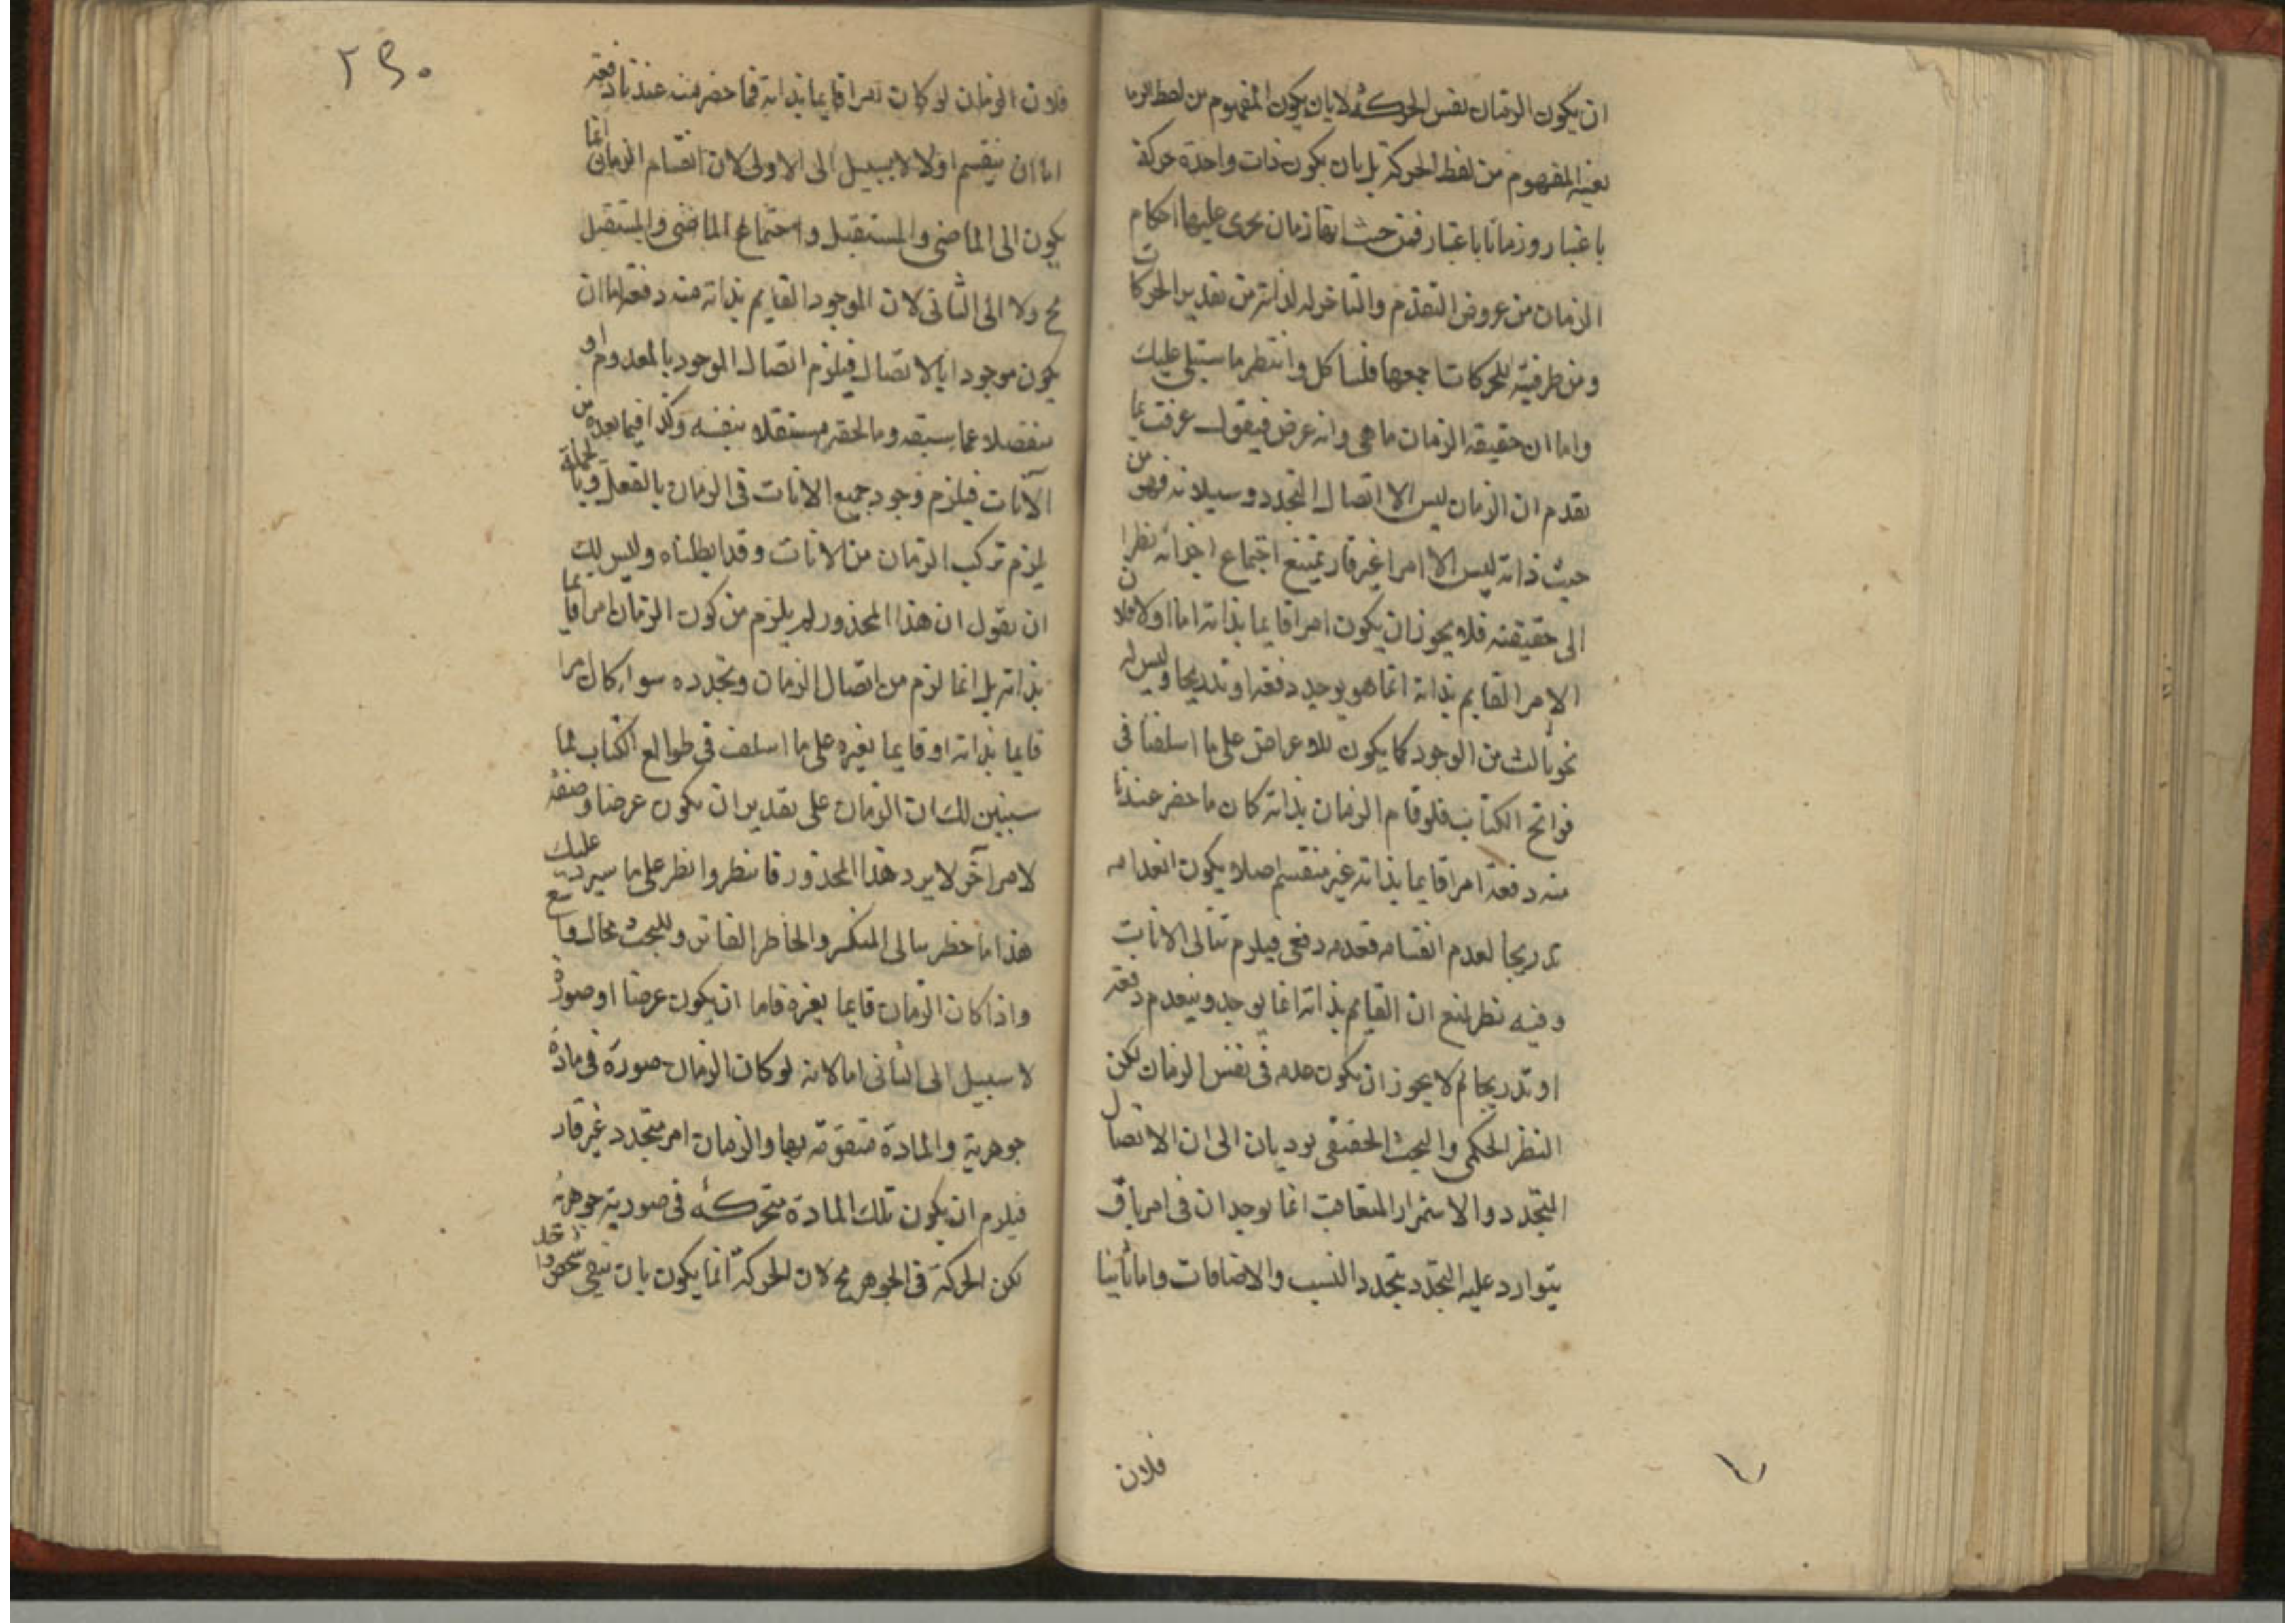 ان يكون الزمان نفس الحركة لا بان يكون المفهوم من لفظ الزما
بعينه المفهوم من لفظ الحركة بل بان يكون ذات واحدة حركة
باعتبار وزمانا باعتبار فمن حيث انها زمان يجرى عليها احكام
الزمان من عروض التقدم والتاخر له لذاته من تقدير الحركات
ومن ظرفيته للحركات جميعها فلنتاكل وانتظر ما سيتلى عليك
واما ان حقيقة الزمان ما هى وانه عرض فيقول عرفت بما
تقدم ان الزمان ليس الا اتصال التجدد وسيلانه فهو من
حيث ذاته ليس الا امرا غير قار يمتنع اجتماع اجزائه نظرا
الى حقيقته فلا يجوز ان يكون امرا قايما بذاته اما اولا فلان
الامر القايم بذاته انما هو يوجد دفعة او تدريجا وليس له
نحو ثالث من الوجود كما يكون للاعراض على ما اسلفنا فى
فواتح الكتاب فلو قام الزمان بذاته كان ما حضر عندنا
منه دفعة امرا قايما بذاته غير منقسم اصلا يكون انعدامه
تدريجا لعدم انقسامه فعدمه دفعى فيلزم تتالى الانات
وفيه نظر لمنع ان القايم بذاته انما يوجد وينعدم دفعة
او تدريجا لم لا يجوز ان يكون عدمه فى نفس الزمان لكن
النظر الحكمى والبحث الحقيقى يوديان الى ان الاتصال
التجدد والاستمرار المتعاقب انما يوجدان فى امر باق
يتوارد عليه التجدد بتجدد النسب والاضافات واما ثانيا
فلان
٢٩٠
فلان الزمان لو كان امرا قايما بذاته فما حضر منه عندنا دفعة
اما ان ينقسم اولا لا سبيل الى الاولى لان انقسام الزمان انما
يكون الى الماضى والمستقبل واجتماع الماضى والمستقبل
مح ولا الى الثانى لان الموجود القايم بذاته منه دفعة اما ان
يكون موجودا بالاتصال فيلزم اتصال الموجود بالمعدوم او
منفصلا عما سبقه وما لحقه مستقلا بنفسه وكذا فيما بعده من
الآنات فيلزم وجود جميع الانات فى الزمان بالفعل وبالجملة
يلزم تركب الزمان من الانات وقد ابطلناه وليس لك
ان تقول ان هذا المحذور لم يلزم من كون الزمان امرا قايما
بذاته بل انما لزم من اتصال الزمان وتجدده سواء كان امرا
قايما بذاته او قايما بغيره على ما اسلف فى طوالع الكتاب لما
سنبين لك ان الزمان على تقدير ان يكون عرضا وصفة
لامر آخر لا يرد هذا المحذور فانتظر وانظر على ما سيرد عليك
هذا ما خطر ببالى المنكسر والخاطر الفاتر وللبحث مجال واسع
واذا كان الزمان قايما بغيره فاما ان يكون عرضا او صورة
لا سبيل الى الثانى اما لانه لو كان الزمان صورة فى مادة
جوهرية والمادة متقومة بها والزمان امر متجدد غير قار
فيلزم ان يكون تلك المادة متحركة فى صورية جوهرية
لكن الحركة فى الجوهر مح لان الحركة انما يكون بان يبقى شخص واحد